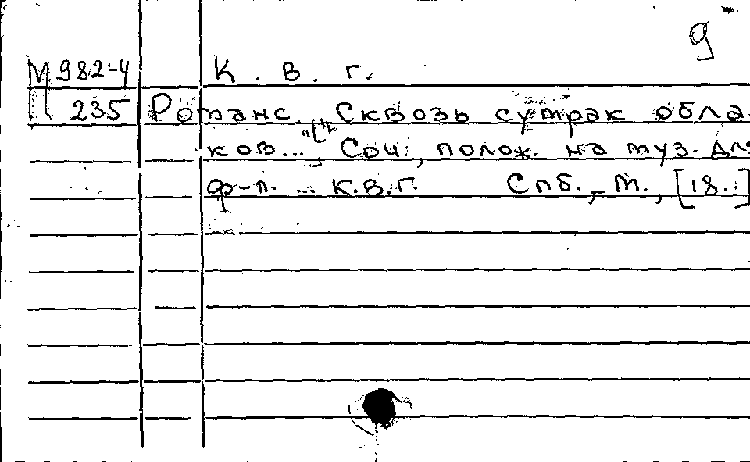 9
М 982-4 К. В. Г.
П 235 Романс. Сквозь сумрак обла
ков... "С" Соч., полож. на муз. дл
ф-п. – К.В.Г. Спб., М., [18..]